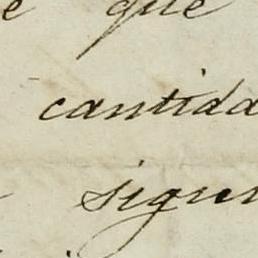 e que
cantida
sigu